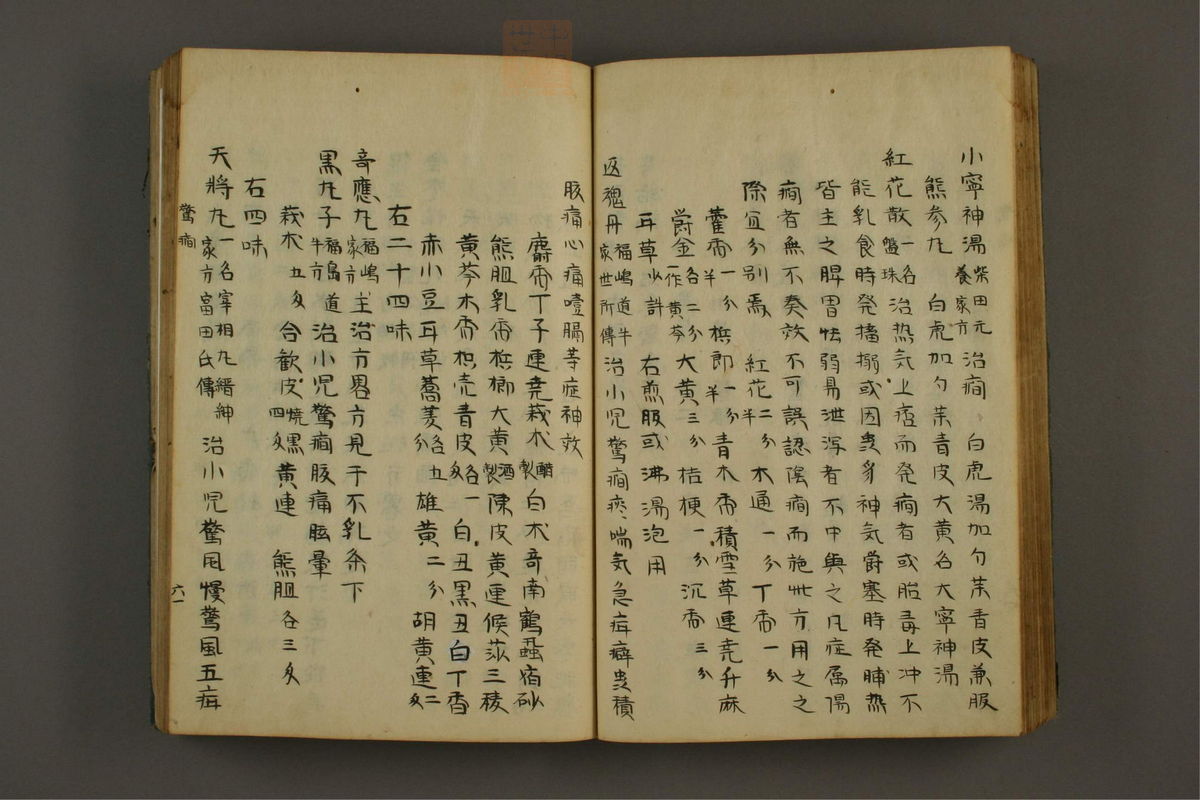 小寧神湯柴田元養家方治癇、白虎湯加勺茱青皮兼服
熊参丸 白虎加勺茱青皮大黄名大寧神湯
紅花散一名盤珠治热気上痞而発癇者或胎毒上冲不
能乳食時発搐搦或因䖝多神気欝塞時発晡热
皆主之脾胃怯弱易泄泻者不中與之凡症属陽
癇者無不奏效不可誤認陰癇而施此方用之之
際宜分別焉 紅花二分半 木通一分丁香一分
藿香一分半梹郎一分半青木香積雪草連尭升麻
欝金各二分一作黄芩大黄三分桔梗一分沉香三分
耳草少許 右煎服或沸湯泡用
返魂丹福嶋道牛家世所傳治小児驚癇痰喘気急疳癖䖝積
腹痛心痛噎膈等症神效
麝香丁子連尭莪朮醋製白朮奇南鶴虱宿砂
熊胆乳香梹榔大黄酒製陳皮黄連候莎三稜
黄芩木香枳壳青皮各一匁白丑黒丑白丁香
赤小豆耳草蕎麦各五分雄黄二分胡黄連二匁
右二十四味
奇應丸福嶋家方主治方畧方見于不乳条下
黒丸子福島道牛方治小児驚癇腹痛眩暈
莪朮五匁合歓皮焼黒四匁黄連 熊胆各三匁
右四味
天将丸一名宰相丸縉紳家方富田氏傳治小児驚風慢驚風五疳
驚癇
六一